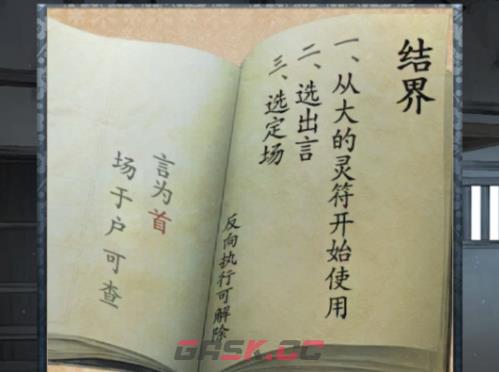 结界
一、从大的灵符开始使用
二、选出言
三、选定场
反向执行可解除
言为首
场于户可查
GASK.CC